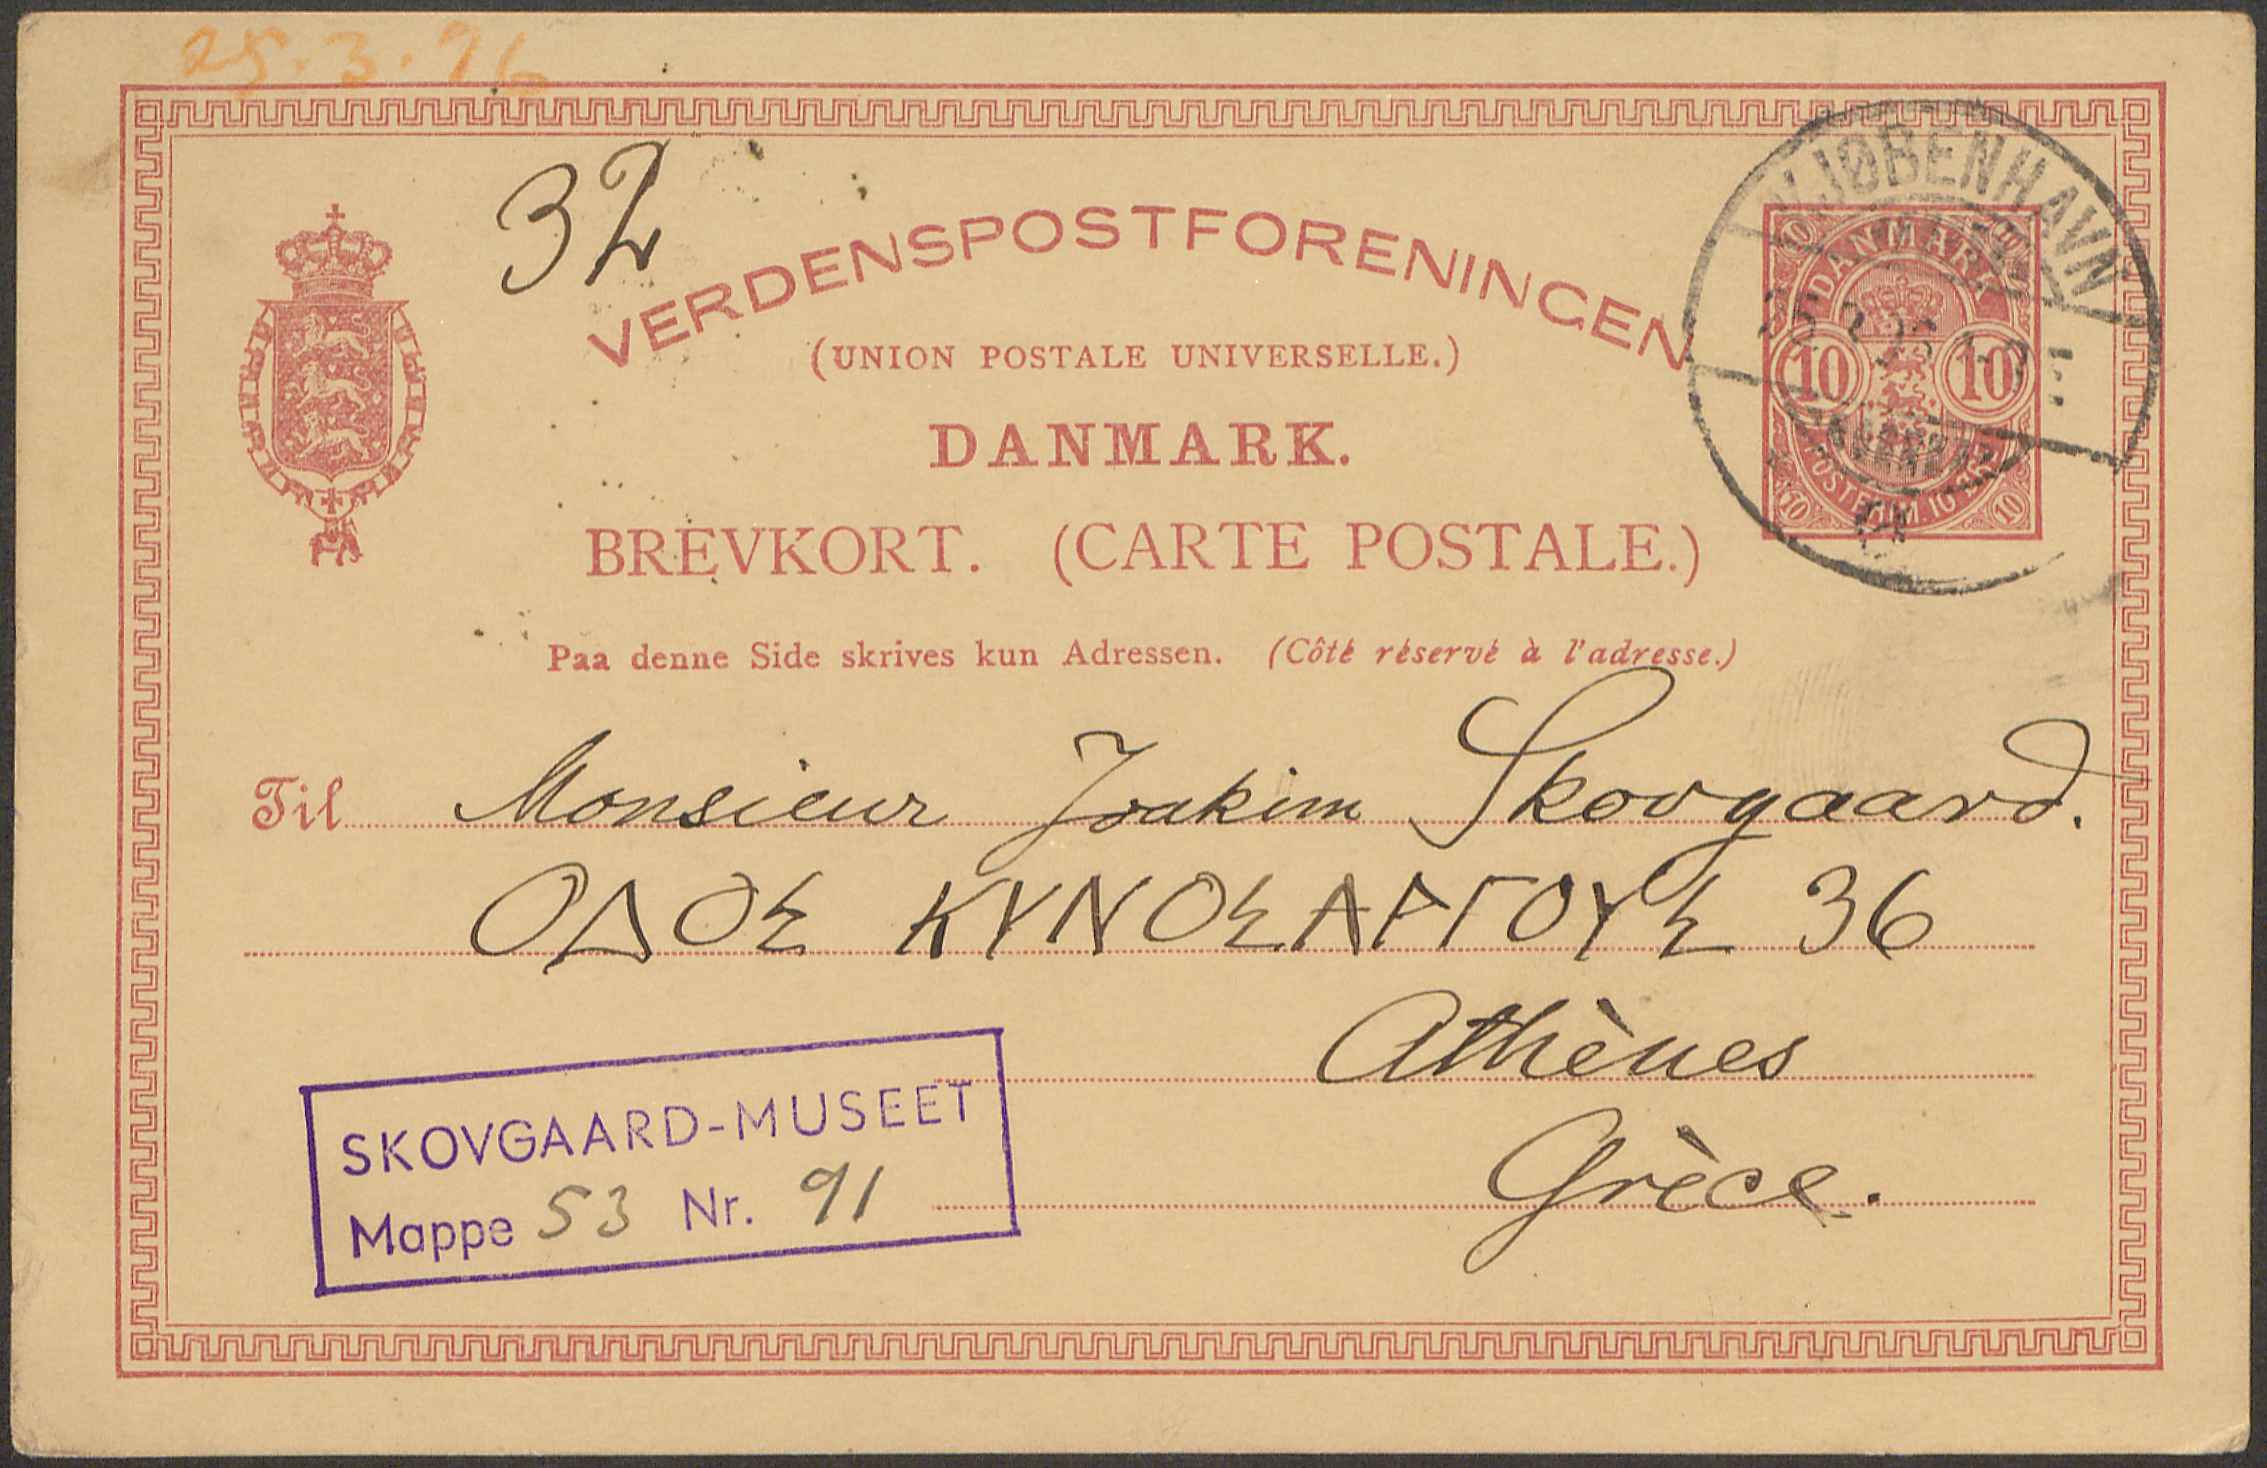 25.3.96
32
VERDENSPOSTFORENINGEN
(UNION POSTALE UNIVERSELLE.)
DANMARK.
BREVKORT. (CARTE POSTALE.)
Paa denne Side skrives kun Adressen. (Côté réservé à l'adresse.)
KJØBENHAVN
DANMARK
10 10
POSTFRIM.
10 10
Til Monsieur Joakim Skovgaard.
ΟΔΟΣ ΚΥΝΟΣΑΡΓΟΥΣ 36
Athènes
Grèce.
SKOVGAARD-MUSEET
Mappe 53 Nr. 91